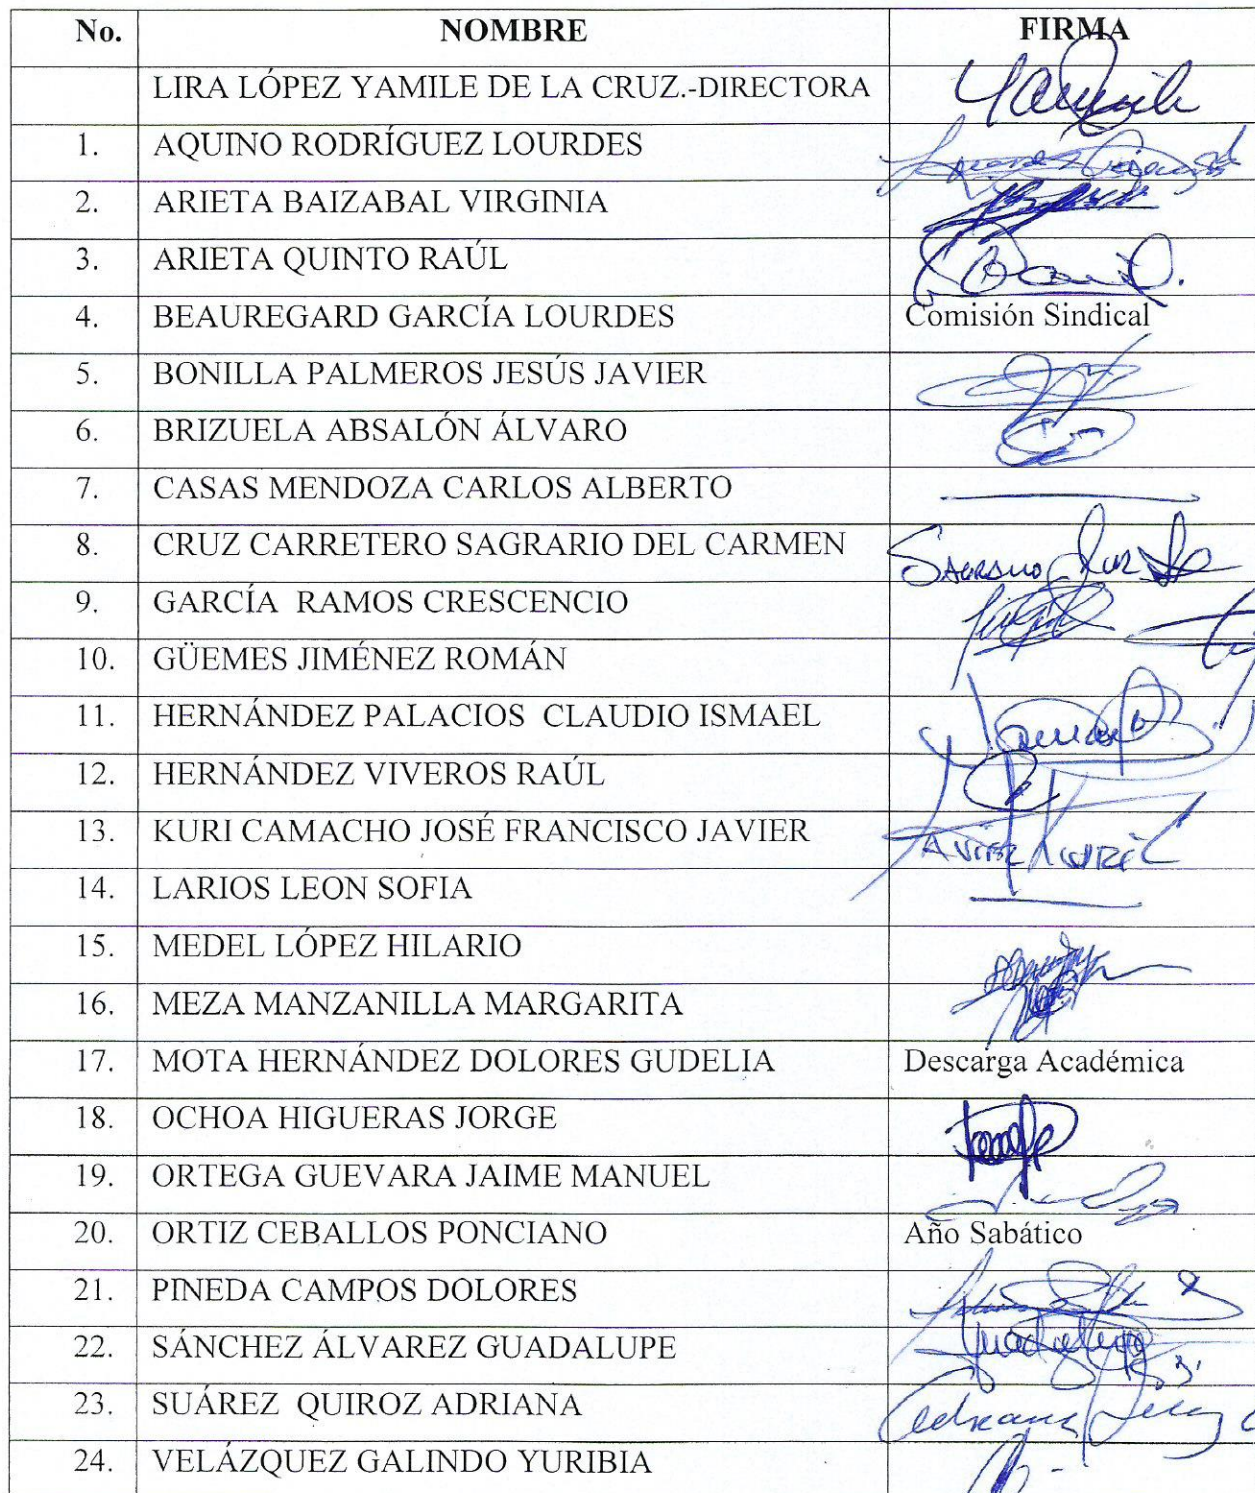 No. NOMBRE FIRMA
LIRA LÓPEZ YAMILE DE LA CRUZ.-DIRECTORA Yamile
1. AQUINO RODRÍGUEZ LOURDES
2. ARIETA BAIZABAL VIRGINIA
3. ARIETA QUINTO RAÚL
4. BEAUREGARD GARCÍA LOURDES Comisión Sindical
5. BONILLA PALMEROS JESÚS JAVIER
6. BRIZUELA ABSALÓN ÁLVARO
7. CASAS MENDOZA CARLOS ALBERTO
8. CRUZ CARRETERO SAGRARIO DEL CARMEN
9. GARCÍA RAMOS CRESCENCIO
10. GÜEMES JIMÉNEZ ROMÁN
11. HERNÁNDEZ PALACIOS CLAUDIO ISMAEL
12. HERNÁNDEZ VIVEROS RAÚL
13. KURI CAMACHO JOSÉ FRANCISCO JAVIER
14. LARIOS LEON SOFIA
15. MEDEL LÓPEZ HILARIO
16. MEZA MANZANILLA MARGARITA
17. MOTA HERNÁNDEZ DOLORES GUDELIA Descarga Académica
18. OCHOA HIGUERAS JORGE
19. ORTEGA GUEVARA JAIME MANUEL
20. ORTIZ CEBALLOS PONCIANO Año Sabático
21. PINEDA CAMPOS DOLORES
22. SÁNCHEZ ÁLVAREZ GUADALUPE Guadalupe
23. SUÁREZ QUIROZ ADRIANA Adriana
24. VELÁZQUEZ GALINDO YURIBIA